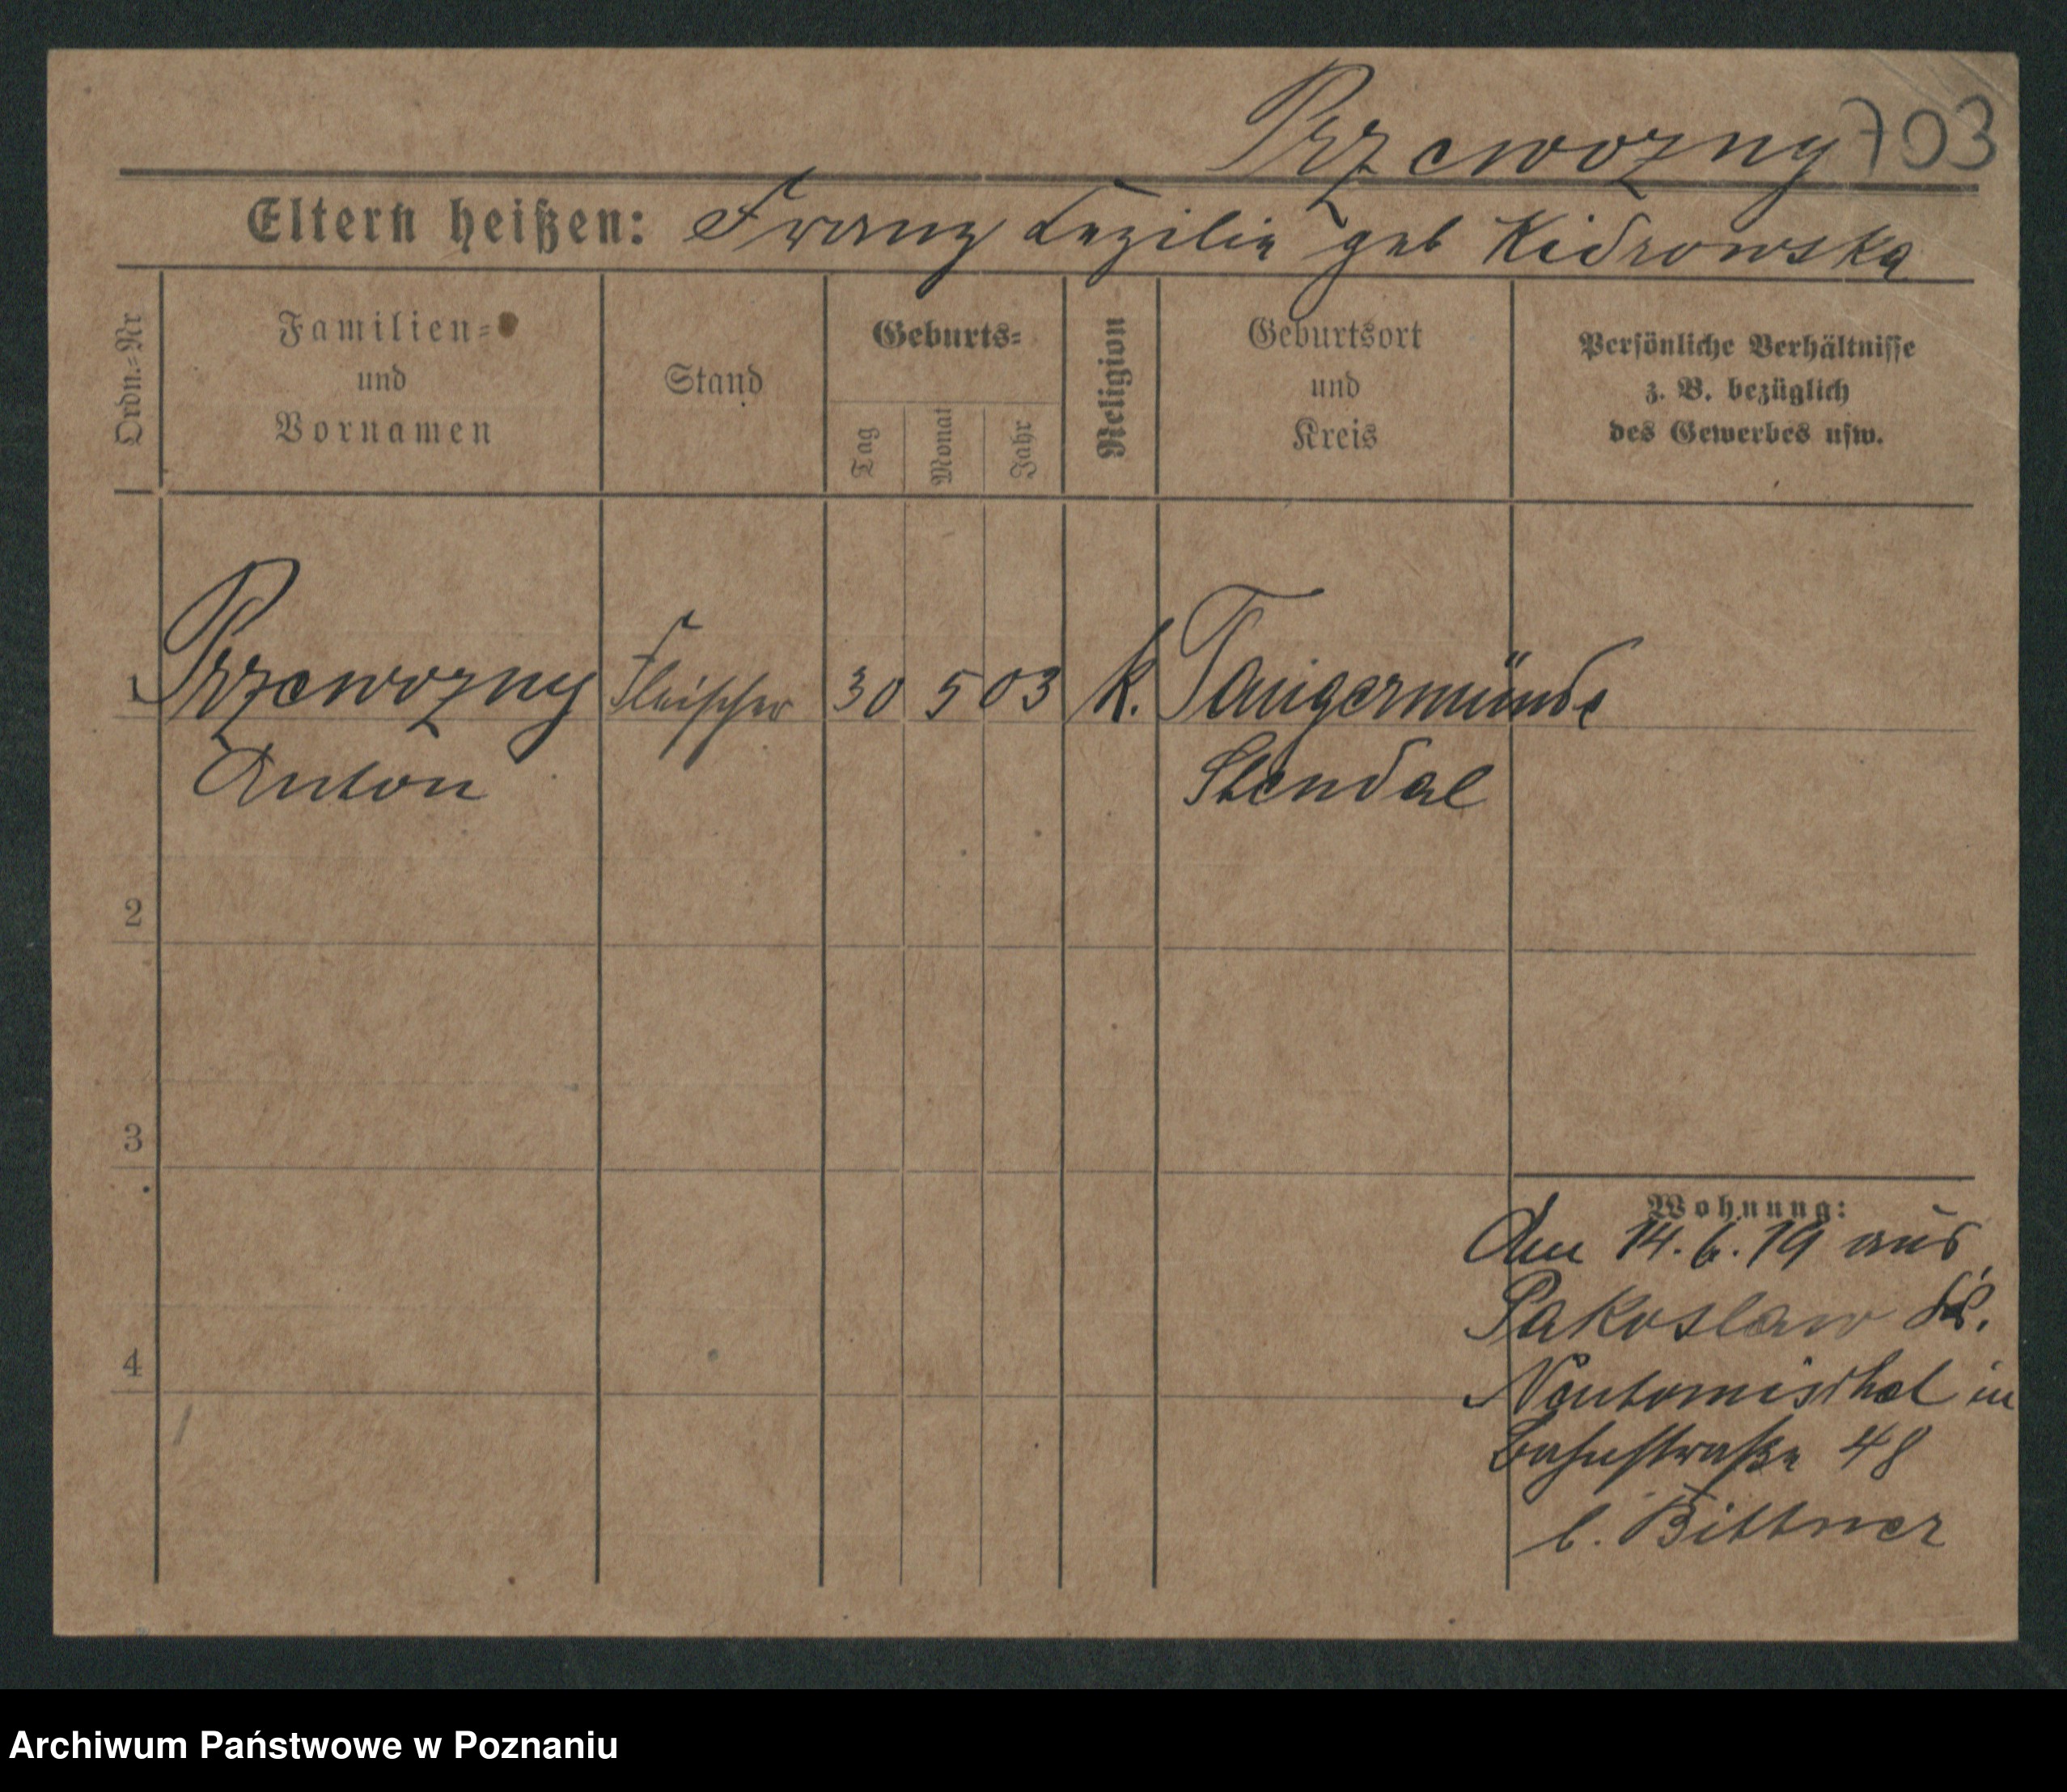 Przewozny 703
Eltern heißen: Franz Cezilie geb Kidrowska
Ordn.=Nr
Familien=
und
Vornamen
Stand
Geburts=
Tag
Monat
Jahr
Religion
Geburtsort
und
Kreis
Persönliche Verhältnisse
z. B. bezüglich
des Gewerbes usw.
1 Przewozny Fleischer 30 5 03 k. Tangermünde
Anton Stendal
2
3
4
Wohnung:
Am 14.6.19 aus
Pakoslaw Kr.
Neutomischel in
Bahnstraße 48
b. Bittner
Archiwum Państwowe w Poznaniu